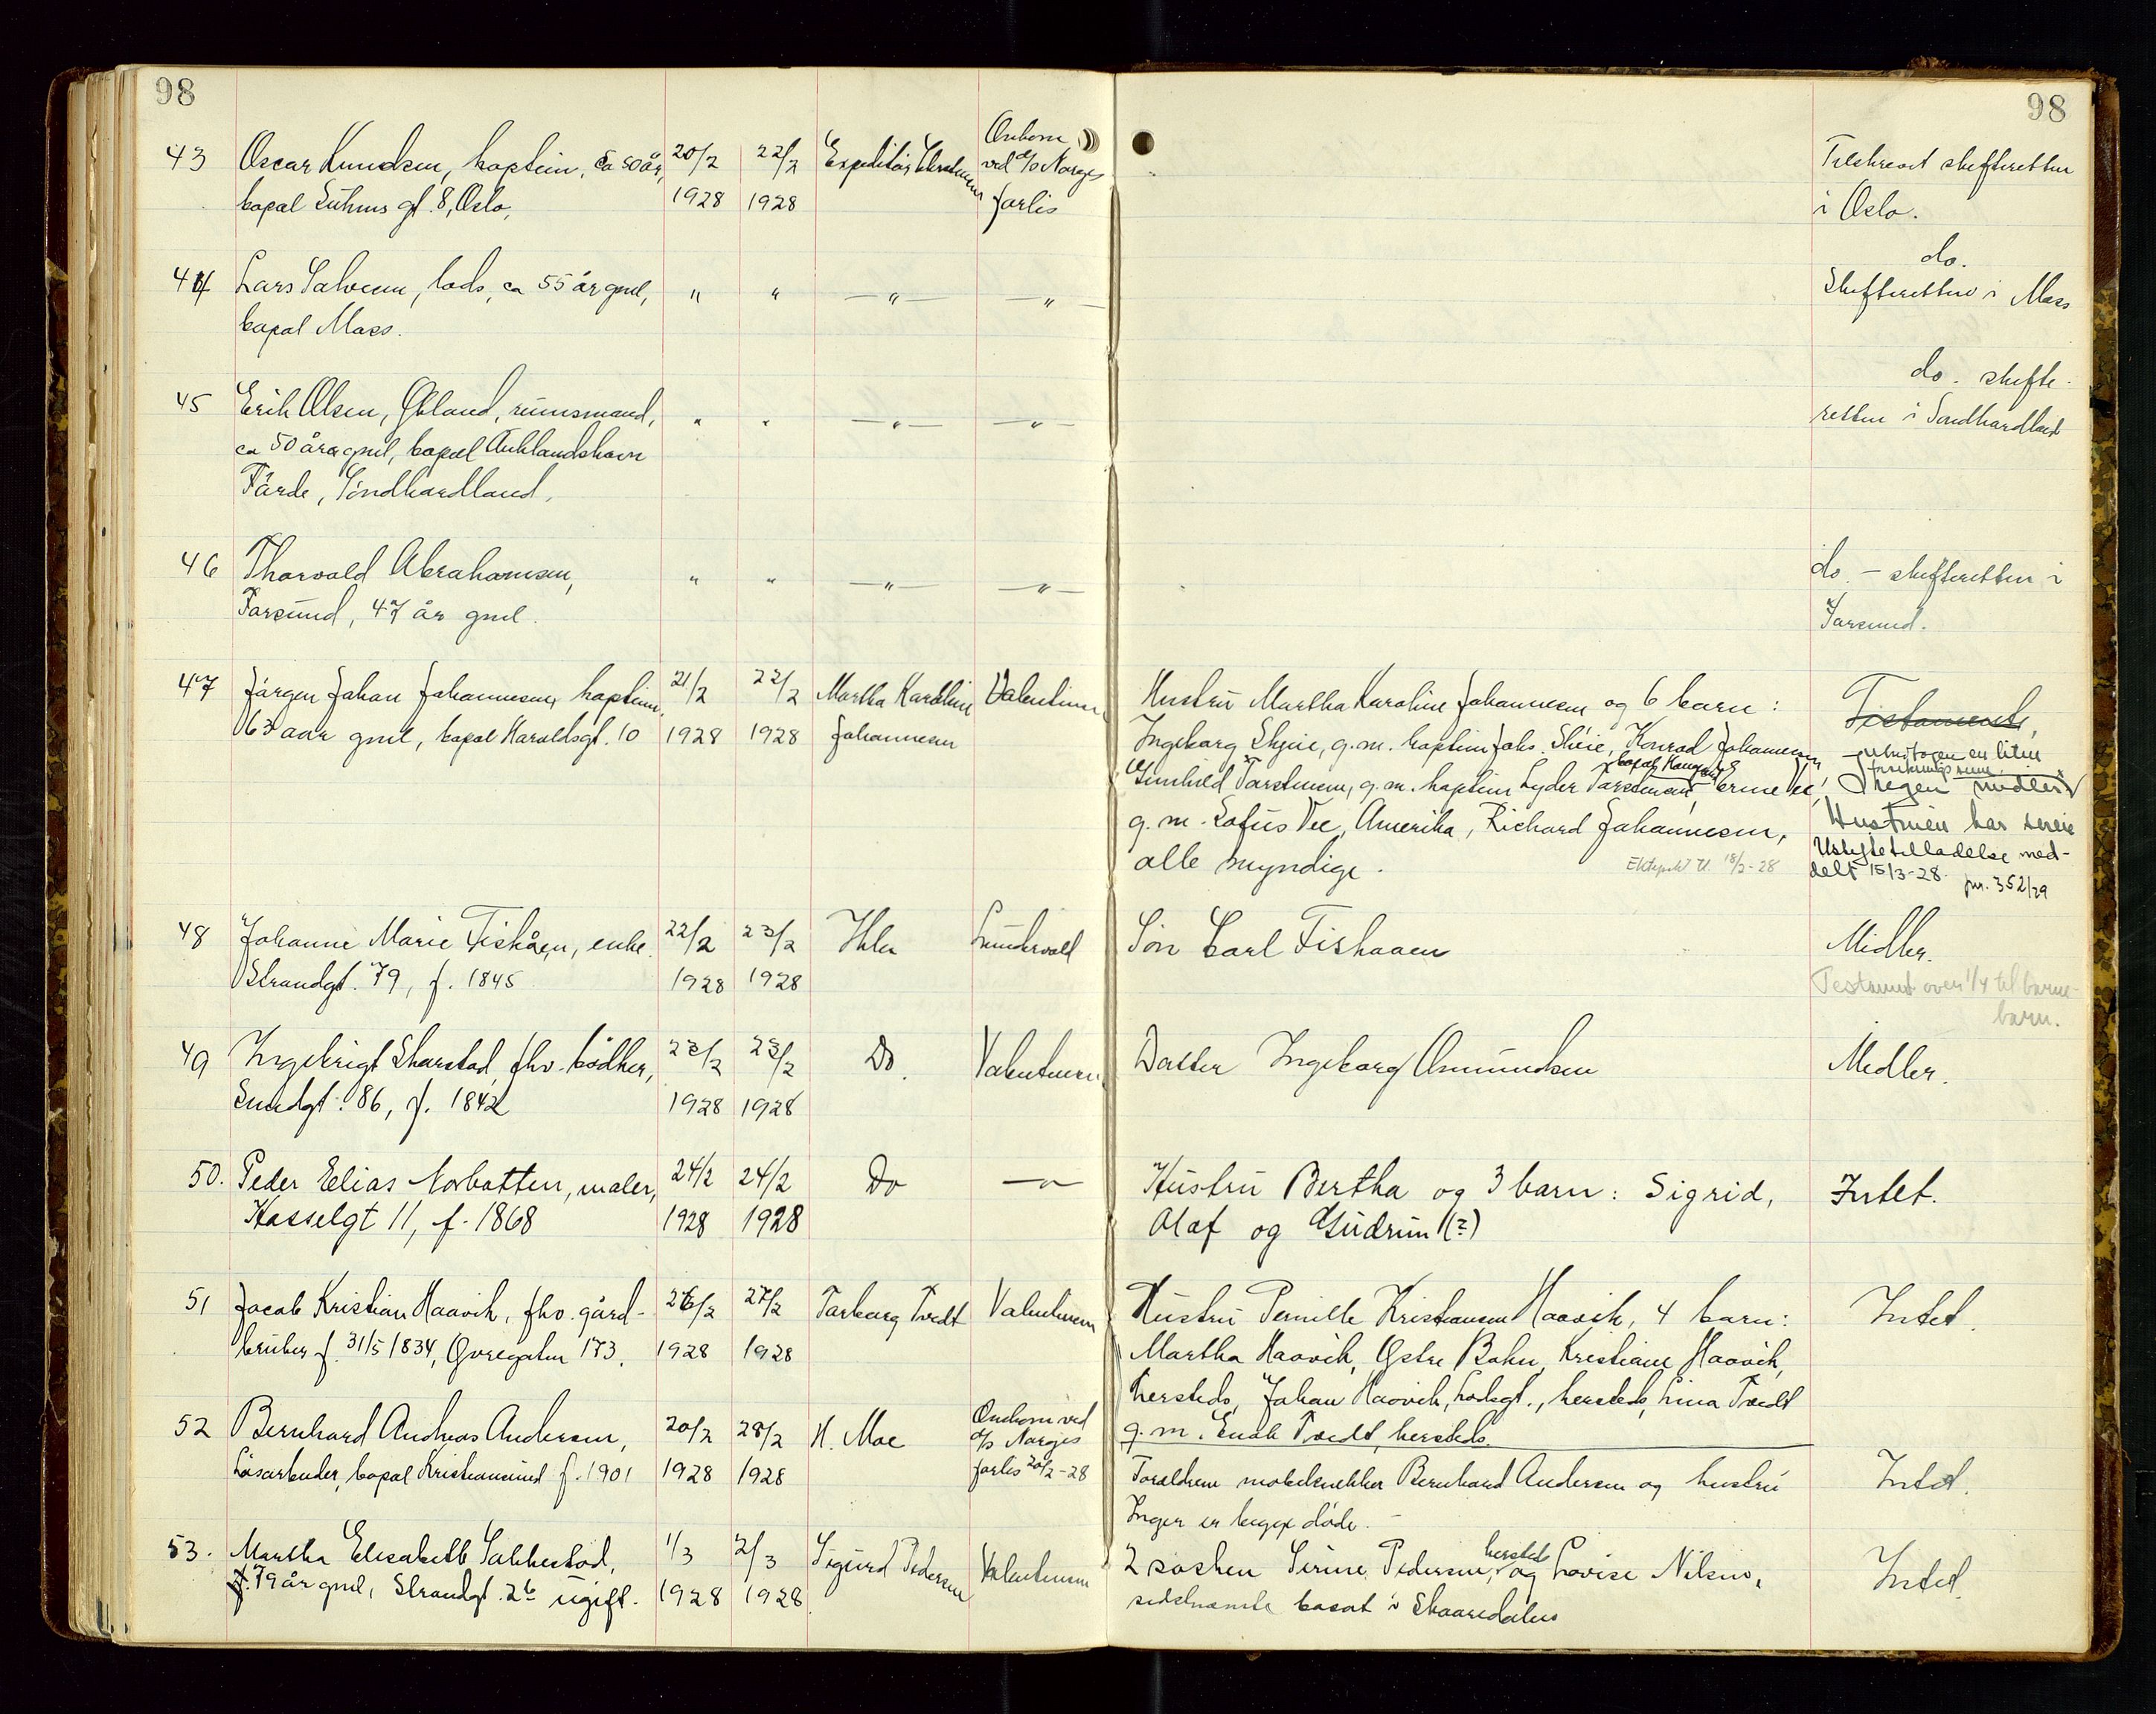 98
98
43 Oscar Knudsen, kaptein, ca 50 år, 20/2 22/2 Expeditør Omkom
bopæl Suhms gt. 8, Oslo, 1928 1928 ved d/s Norges
forlis
Tilskrevet skifteretten
i Oslo.
44 Lars Salvesen, lods, ca 55 år gml, " " —"— —"—
bopæl Mass.
do.
Skifteretten i Mass
45 Erik Olsen, Økland, rumsmand, " " —"— —"—
ca 50 år gml, bopæl Auklandshavn
Førde, Søndhordland.
do. skifte-
retten i Søndhordland
46 Thorvald Abrahamsen, " " —"— —"—
Farsund, 47 år gml.
do. – skifteretten i
Farsund.
47 Jørgen Johan Johannesen, kaptein, 21/2 22/2 Martha Karoline Valentinsen
63 aar gml, bopæl Haraldsgt. 10 1928 1928 Johannesen
Hustru Martha Karoline Johannesen og 6 barn:
Ingeborg Skeie, g.m. kaptein Johs. Skeie, Konrad Johannesen
bopæl
Gunhild Torstensen, g.m. kaptein Lyder Torstensen, Erne Vee,
g.m. Sofus Vee, Amerika, Richard Johannesen,
alle myndige. 18/2-28
Testamente,
undtagen en liten
forsikrings sum.
Ingen midler
Hustruen har
Uskiftetilladelse med-
delt 15/3-28. jnr. 352/29
48 Johanne Marie Fiskåen, enke. 22/2 23/2 Ihlen Sundervold
Strandgt. 79, f. 1845 1928 1928
Søn Carl Fiskaaen
Midler.
Testament over 1/4 til barne-
barn.
49 Ingebrigt Skarstad, fhv. bødker, 22/2 23/2 Do. Valentinsen
Sundgt. 86, f. 1842 1928 1928
Datter Ingeborg Osmundsen
Midler.
50. Peder Elias Norbotten, maler, 24/2 24/2 Do —"—
Hasselgt 11, f. 1868 1928 1928
Hustru Bertha og 3 barn: Sigrid,
Olaf og Gudrun (?)
Intet.
51 Jacob Kristian Haavik, fhv. gård- 26/2 27/2 Torborg Tvedt Valentinsen
bruker f. 31/5 1834, Øvregaten 173. 1928 1928
Hustru Pernille Kristiansen Haavik, 4 barn:
Martha Haavik, Østre Bokn, Kristiane Haavik,
hersteds, Johan Haavik, Lodsgt., hersteds, Lina Tvedt
g.m. Enok Tvedt, hersteds.
Intet.
52 Bernhard Andreas Andersen, 20/2 28/2 H. Moe Omkom ved
Løsarbeider, bopæl Kristiansund f. 1901 1928 1928 d/s Norges
forlis 20/2-28
Forældrene møbelsnekker Bernhard Andersen og hustru
Inger er begge døde. –
Intet.
53. Martha Elisabeth Sakkestad, 1/3 2/3 Sigurd Pedersen Valentinsen
79 år gml, Strandgt. 26 ugift. 1928 1928
hersteds
2 søsken Serine Pedersen, og Lovise Nilsen,
sidstnævnte bosat i Skaaredalen
Intet.